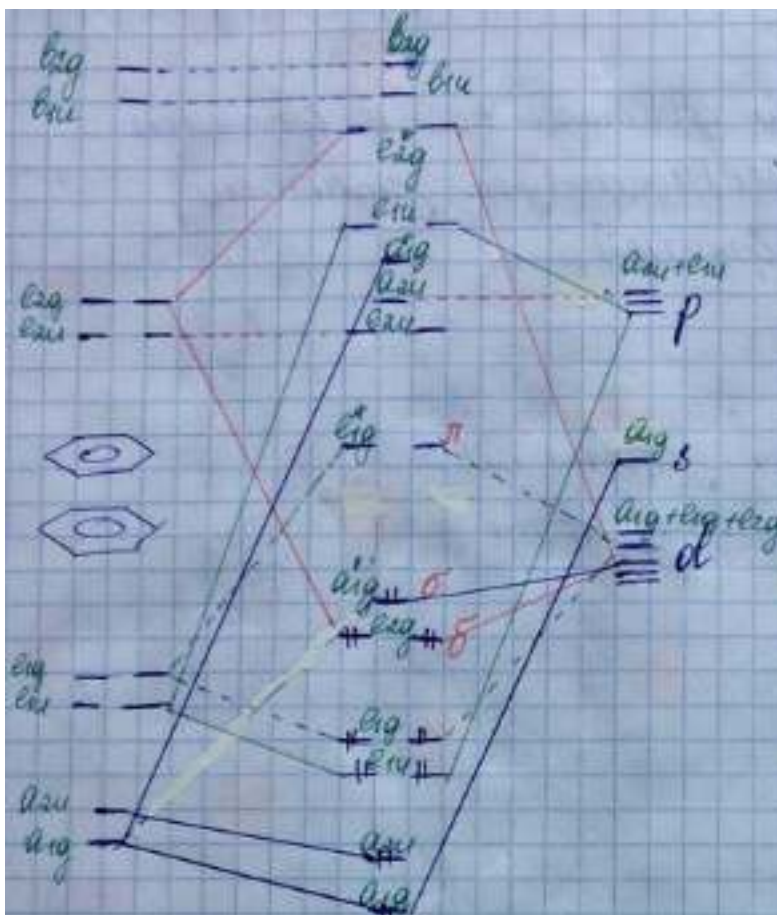 b2g
b2g
b1u
b1u
e2g*
e1u*
a1g*
a2u
a2u+e1u
e2g
e2u
e2u
p
e1g*
π
a1g
s
a1g+e1g+e2g
d
a1g
σ
e2g
δ
e1g
e1u
e1g
e1u
a2u
a1g
a2u
a1g